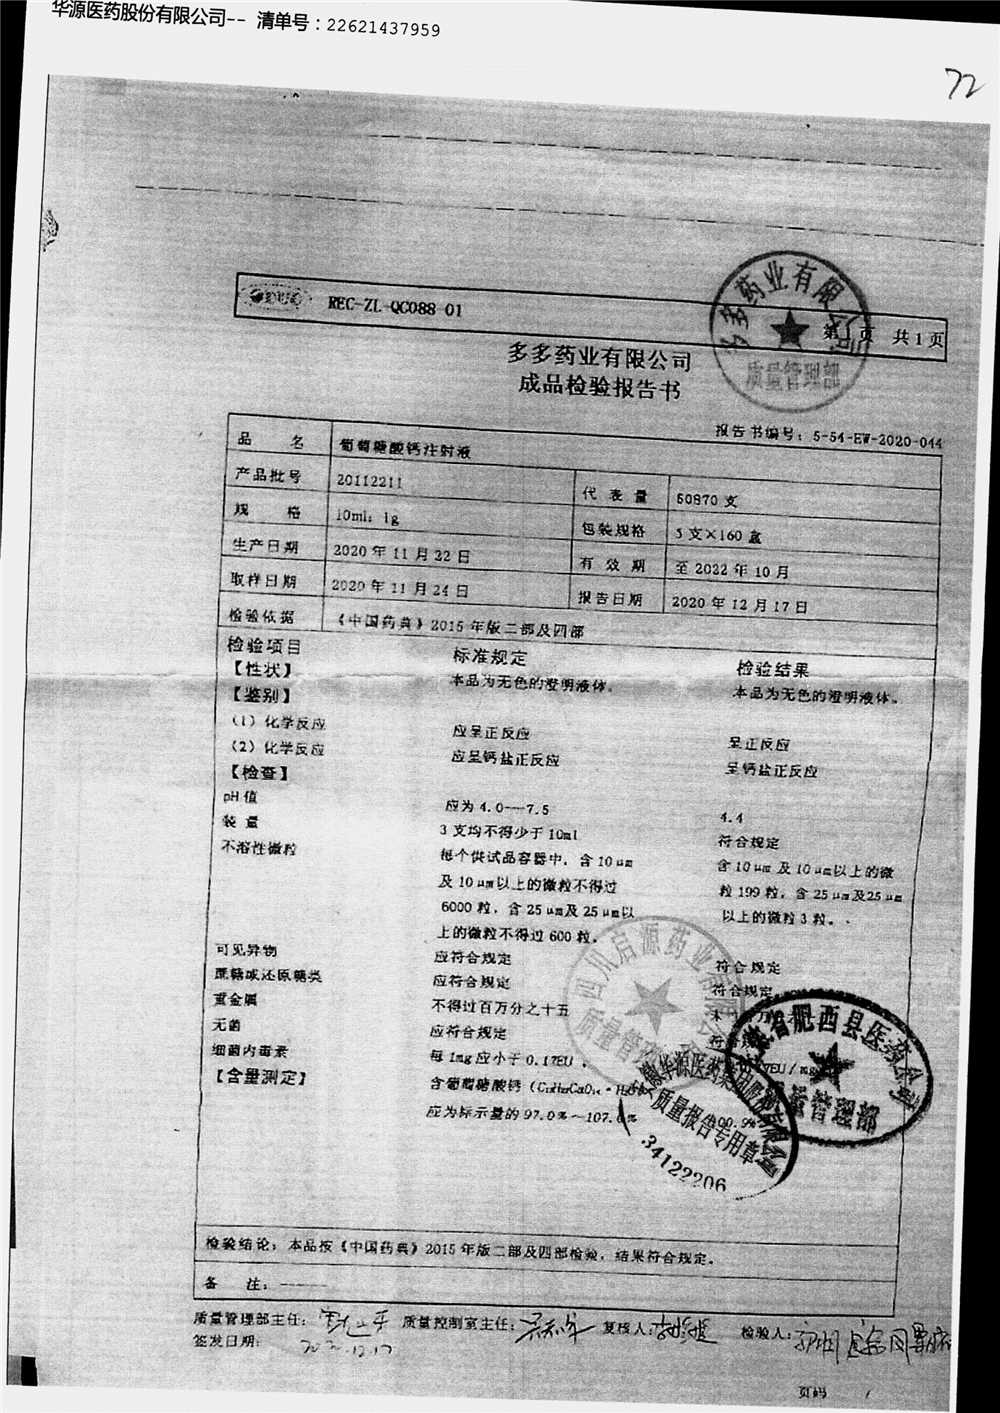 华源医药股份有限公司-- 清单号：22621437959
72
REC-ZL-QC088-01 第1页 共1页
多多药业有限公司
质量管理部
多多药业有限公司
成品检验报告书
报告书编号：5-54-EW-2020-044
品 名 葡萄糖酸钙注射液
产品批号 20112211 代表量 60870支
规 格 10ml：1g 包装规格 5支×160盒
生产日期 2020年11月22日 有效期 至2022年10月
取样日期 2020年11月24日 报告日期 2020年12月17日
检验依据 《中国药典》2015年版二部及四部
检验项目 标准规定 检验结果
【性状】 本品为无色的澄明液体。 本品为无色的澄明液体。
【鉴别】
（1）化学反应 应呈正反应 呈正反应
（2）化学反应 应呈钙盐正反应 呈钙盐正反应
【检查】
pH值 应为4.0—7.5 4.4
装量 3支均不得少于10ml 符合规定
不溶性微粒 每个供试品容器中，含10μm 含10μm及10μm以上的微
及10μm以上的微粒不得过 粒199粒，含25μm及25μm
6000粒，含25μm及25μm以 以上的微粒3粒。
上的微粒不得过600粒。
可见异物 应符合规定 符合规定
蔗糖或还原糖类 应符合规定 符合规定
重金属 不得过百万分之十五
无菌 应符合规定
细菌内毒素 每1mg应小于0.17EU。
【含量测定】 含葡萄糖酸钙（C₁₂H₂₂CaO₁₄·H₂O）
应为标示量的97.0%～107.0%
四川启源药业有限公司
质量管理部
省肥西县医药公司
质量管理部
安徽华源医药集团股份有限公司
质量报告专用章
34122206
检验结论：本品按《中国药典》2015年版二部及四部检验，结果符合规定。
备 注：------
质量管理部主任： 质量控制室主任： 复核人： 检验人：
签发日期： 2020.12.17
页码 /